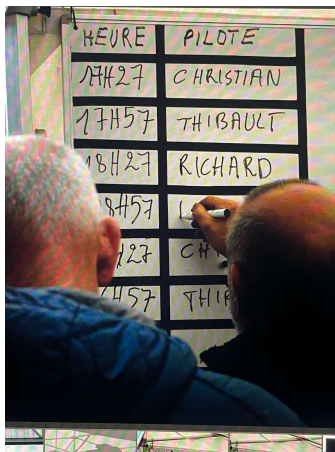 HEURE PILOTE
17H27 CHRISTIAN
17H57 THIBAULT
18H27 RICHARD
8H57
H27
H57